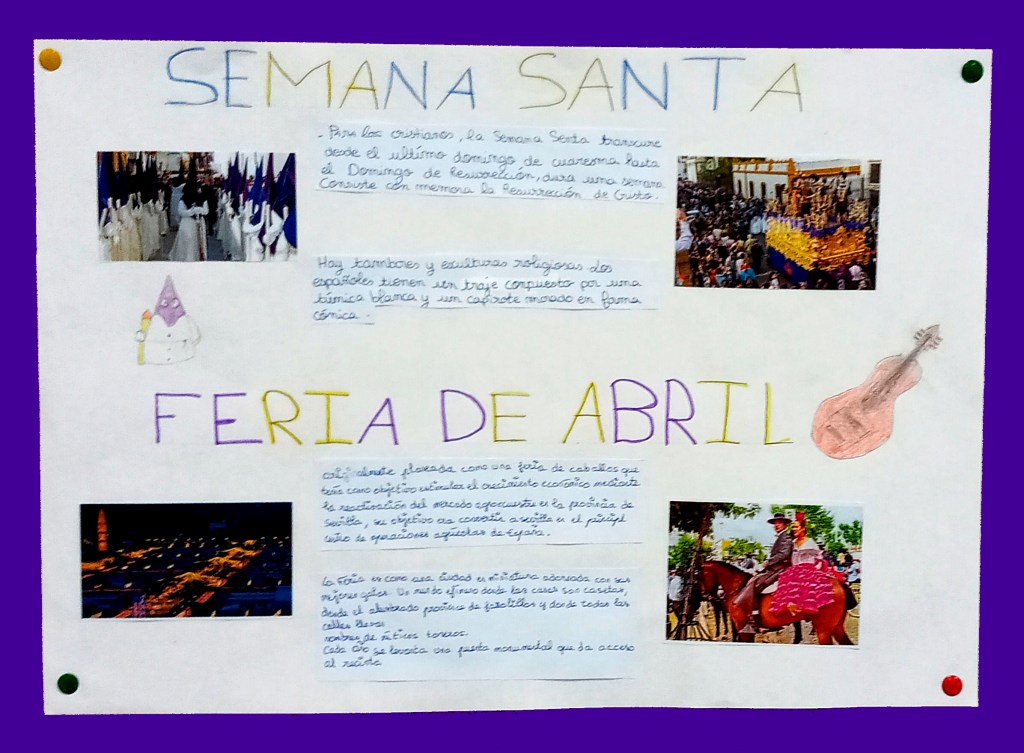 SEMANA SANTA
- Para los cristianos, la Semana Santa transcurre
desde el ultimo domingo de cuaresma hasta
el Domingo de Resurrección, dura una semana.
Consiste con memoria la Resurrección de Cristo.
Hay tambores y esculturas religiosas los
españoles tienen un traje compuesto por una
túmica blanca y un capirote morado en forma
cónica.
FERIA DE ABRIL
originalmente planteada como una feria de caballos que
tenía como objetivo estimular el crecimiento económico mediante
la reactivación del mercado agroecuestre en la provincia de
Sevilla, su objetivo era convertir a sevilla en el principal
centro de operaciones agrícolas de España.
La Feria es como una ciudad en miniatura adornada con sus
mejores galas. Un mundo efímero donde las casas son casetas,
desde el alumbrado de farolillos y donde todas las
calles llevan
nombres de míticos toreros.
Cada año se levanta una puerta monumental que da acceso
al recinto